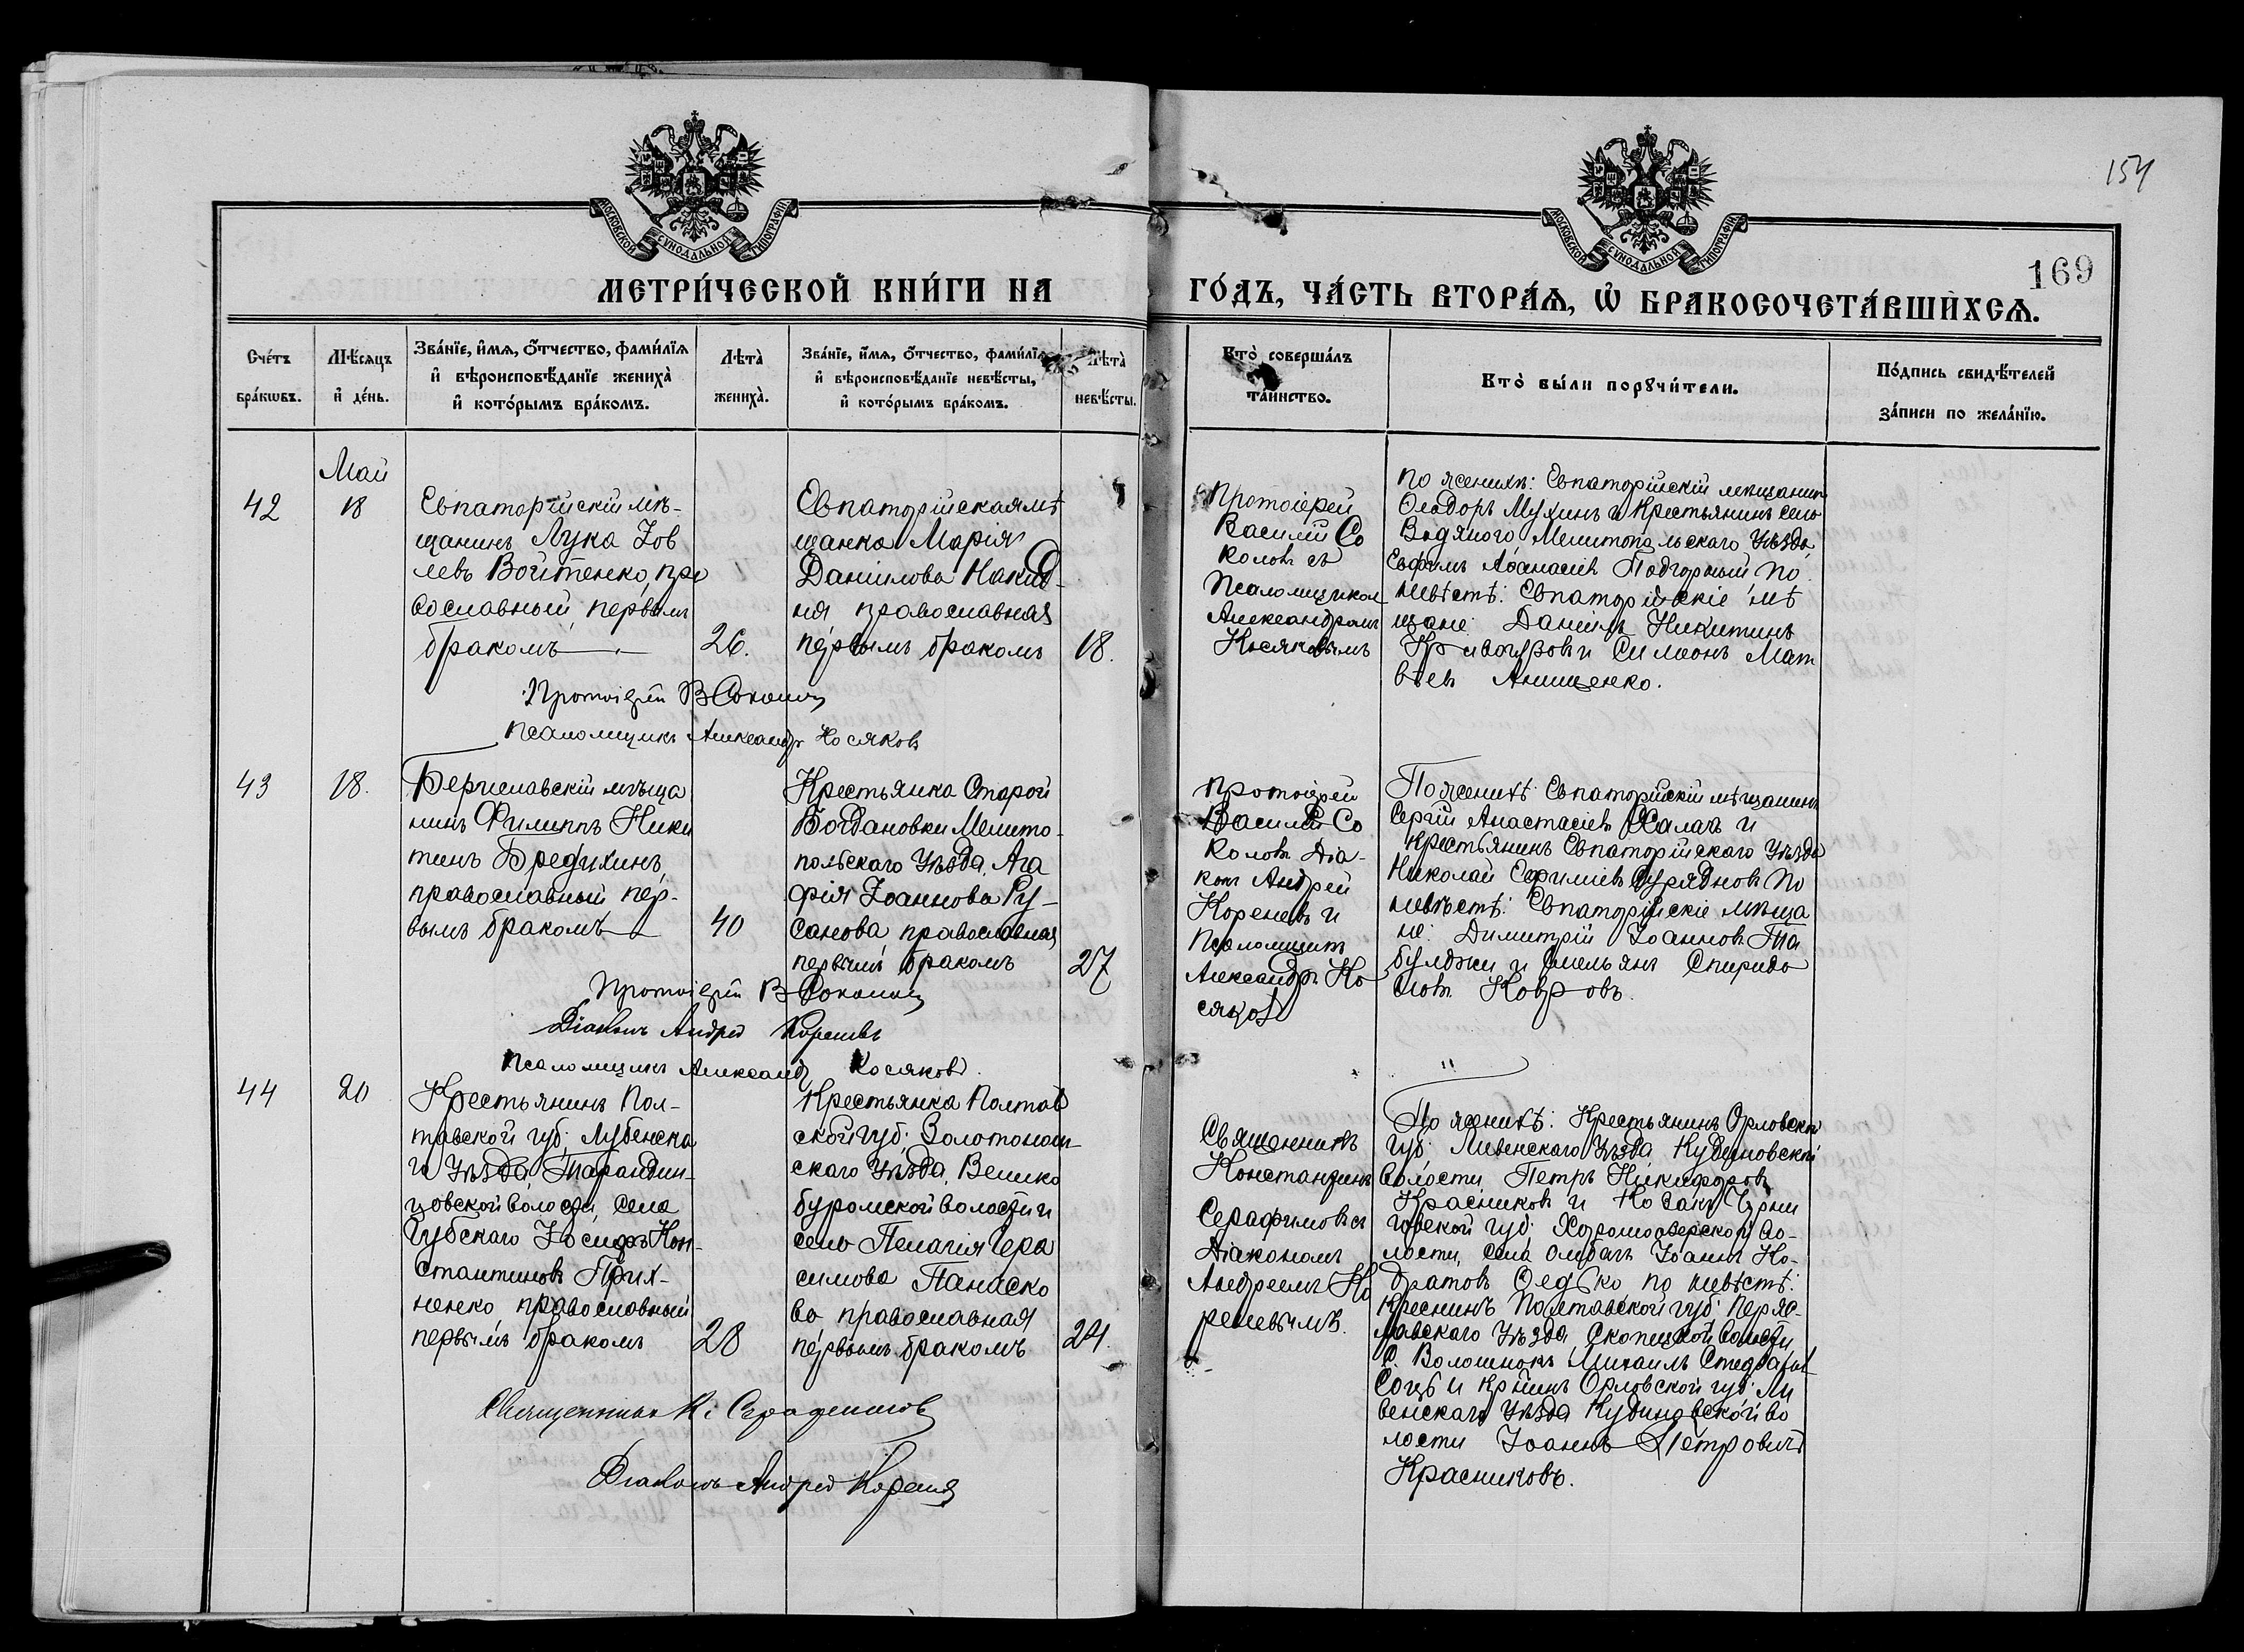 154
169
МОСКОВСКОЙ СѴНОДАЛЬНОЙ ТИПОГРАФІИ
МОСКОВСКОЙ СѴНОДАЛЬНОЙ ТИПОГРАФІИ
МЕТРИ́ЧЕСКОЙ КНИ́ГИ НА
ГО́ДЪ, ЧА́СТЬ ВТОРА́Ѧ, Ѡ҆ БРАКОСОЧЕТА́ВШИХСѦ.
Сче́тъ
бра́кѡвъ.
Мѣ́сяцъ
и҆ де́нь.
Зва́нїе, и҆́мѧ, ѻ҆́тчество, фами́лїѧ
и҆ вѣроисповѣ́данїе жениха̀
и҆ кото́рымъ бра́комъ.
Лѣта̀
жениха̀.
Зва́нїе, и҆́мѧ, ѻ҆́тчество, фами́лїѧ
и҆ вѣроисповѣ́данїе невѣ́сты,
и҆ кото́рымъ бра́комъ.
Лѣта̀
невѣ́сты.
Кто̀ соверша́лъ
та́инство.
Кто̀ бы́ли порꙋчи́тели.
По́дпись свидѣ́телей
за́писи по жела́нїю.
42
Май
18
Евпаторійскій мѣ-
щанинъ Лука Іов
левъ Войтенко, пра
вославный, первымъ
бракомъ
26.
Евпаторійская мѣ
щанка Марія
Даніилова Накид-
ня, православная
первымъ бракомъ
18.
Протоіерей
Василій Со
коловъ съ
Псаломщикомъ
Александромъ
Косяковымъ
По женихѣ: Евпаторійскій мѣщанинъ
Ѳеодоръ Мухинъ и Крестьянинъ села
Водяного Мелитопольскаго Уѣзда
Ефимъ Аѳанасіевъ Подгорный По
невѣстѣ: Евпаторійскіе мѣ
щане: Даніилъ Никитинъ
и Симеонъ Мат
вѣевъ Анищенко.
Протоіерей В Соколовъ
Псаломщикъ Александръ Косяковъ
43
18.
Бериславскій мѣща
нинъ Филиппъ Ники
тинъ Бредихинъ,
православный пер-
вымъ бракомъ
40
Крестьянка Старой
Богдановки Мелито-
польскаго Уѣзда, Ага
фія Іоаннова Ру-
санова, православная
первымъ бракомъ
27
Протоіерей
Василій Со
коловъ Діа-
конъ Андрей
Кореневъ и
Псаломщикъ
Александръ Ко
сяковъ
По женихѣ: Евпаторійскій мѣщанинъ
Сергій Анастасіевъ Халачъ и
Крестьянинъ Евпаторійскаго Уѣзда
Николай По
невѣстѣ: Евпаторійскіе мѣща
не: Димитрій Іоанновъ Та
булджи и Емельянъ Спиридо
новъ Ковровъ.
Протоіерей В Соколовъ
Діаконъ Андрей Кореневъ
Псаломщикъ Александръ Косяковъ.
44
20
Крестьянинъ Пол-
тавской губ; Лубенска
го Уѣзда, Тарандин-
цовской волости, села
Губскаго Іосифъ Кон-
стантиновъ Прих-
ненко православный
первымъ бракомъ
28
Крестьянка Полтав
ской губ; Золотонош-
скаго Уѣзда, Велико
буромской волости и
села Пелагія Гера
симова Панаско
ва православная
первымъ бракомъ
24.
Священникъ
Константинъ
Серафимовъ съ
Діакономъ
Андреемъ Ко
реневымъ.
По женихѣ: Крестьянинъ Орловской
губ; Ливенскаго Уѣзда Кудиновской
волости Петръ Никифоровъ
Красниковъ и Козакъ Черни
говской губ; во-
лости, села Іоаннъ Ко-
дратовъ Федько по невѣстѣ:
Крестнинъ Полтавской губ; Перяс-
лавскаго Уѣзда, волости,
с. Михаилъ
и Кр-нинъ Орловской губ; Ли
венскаго Уѣзда Кудиновской во
лости Іоаннъ Петровичъ
Красниковъ.
Священникъ К. Серафимовъ
Діаконъ Андрей Кореневъ